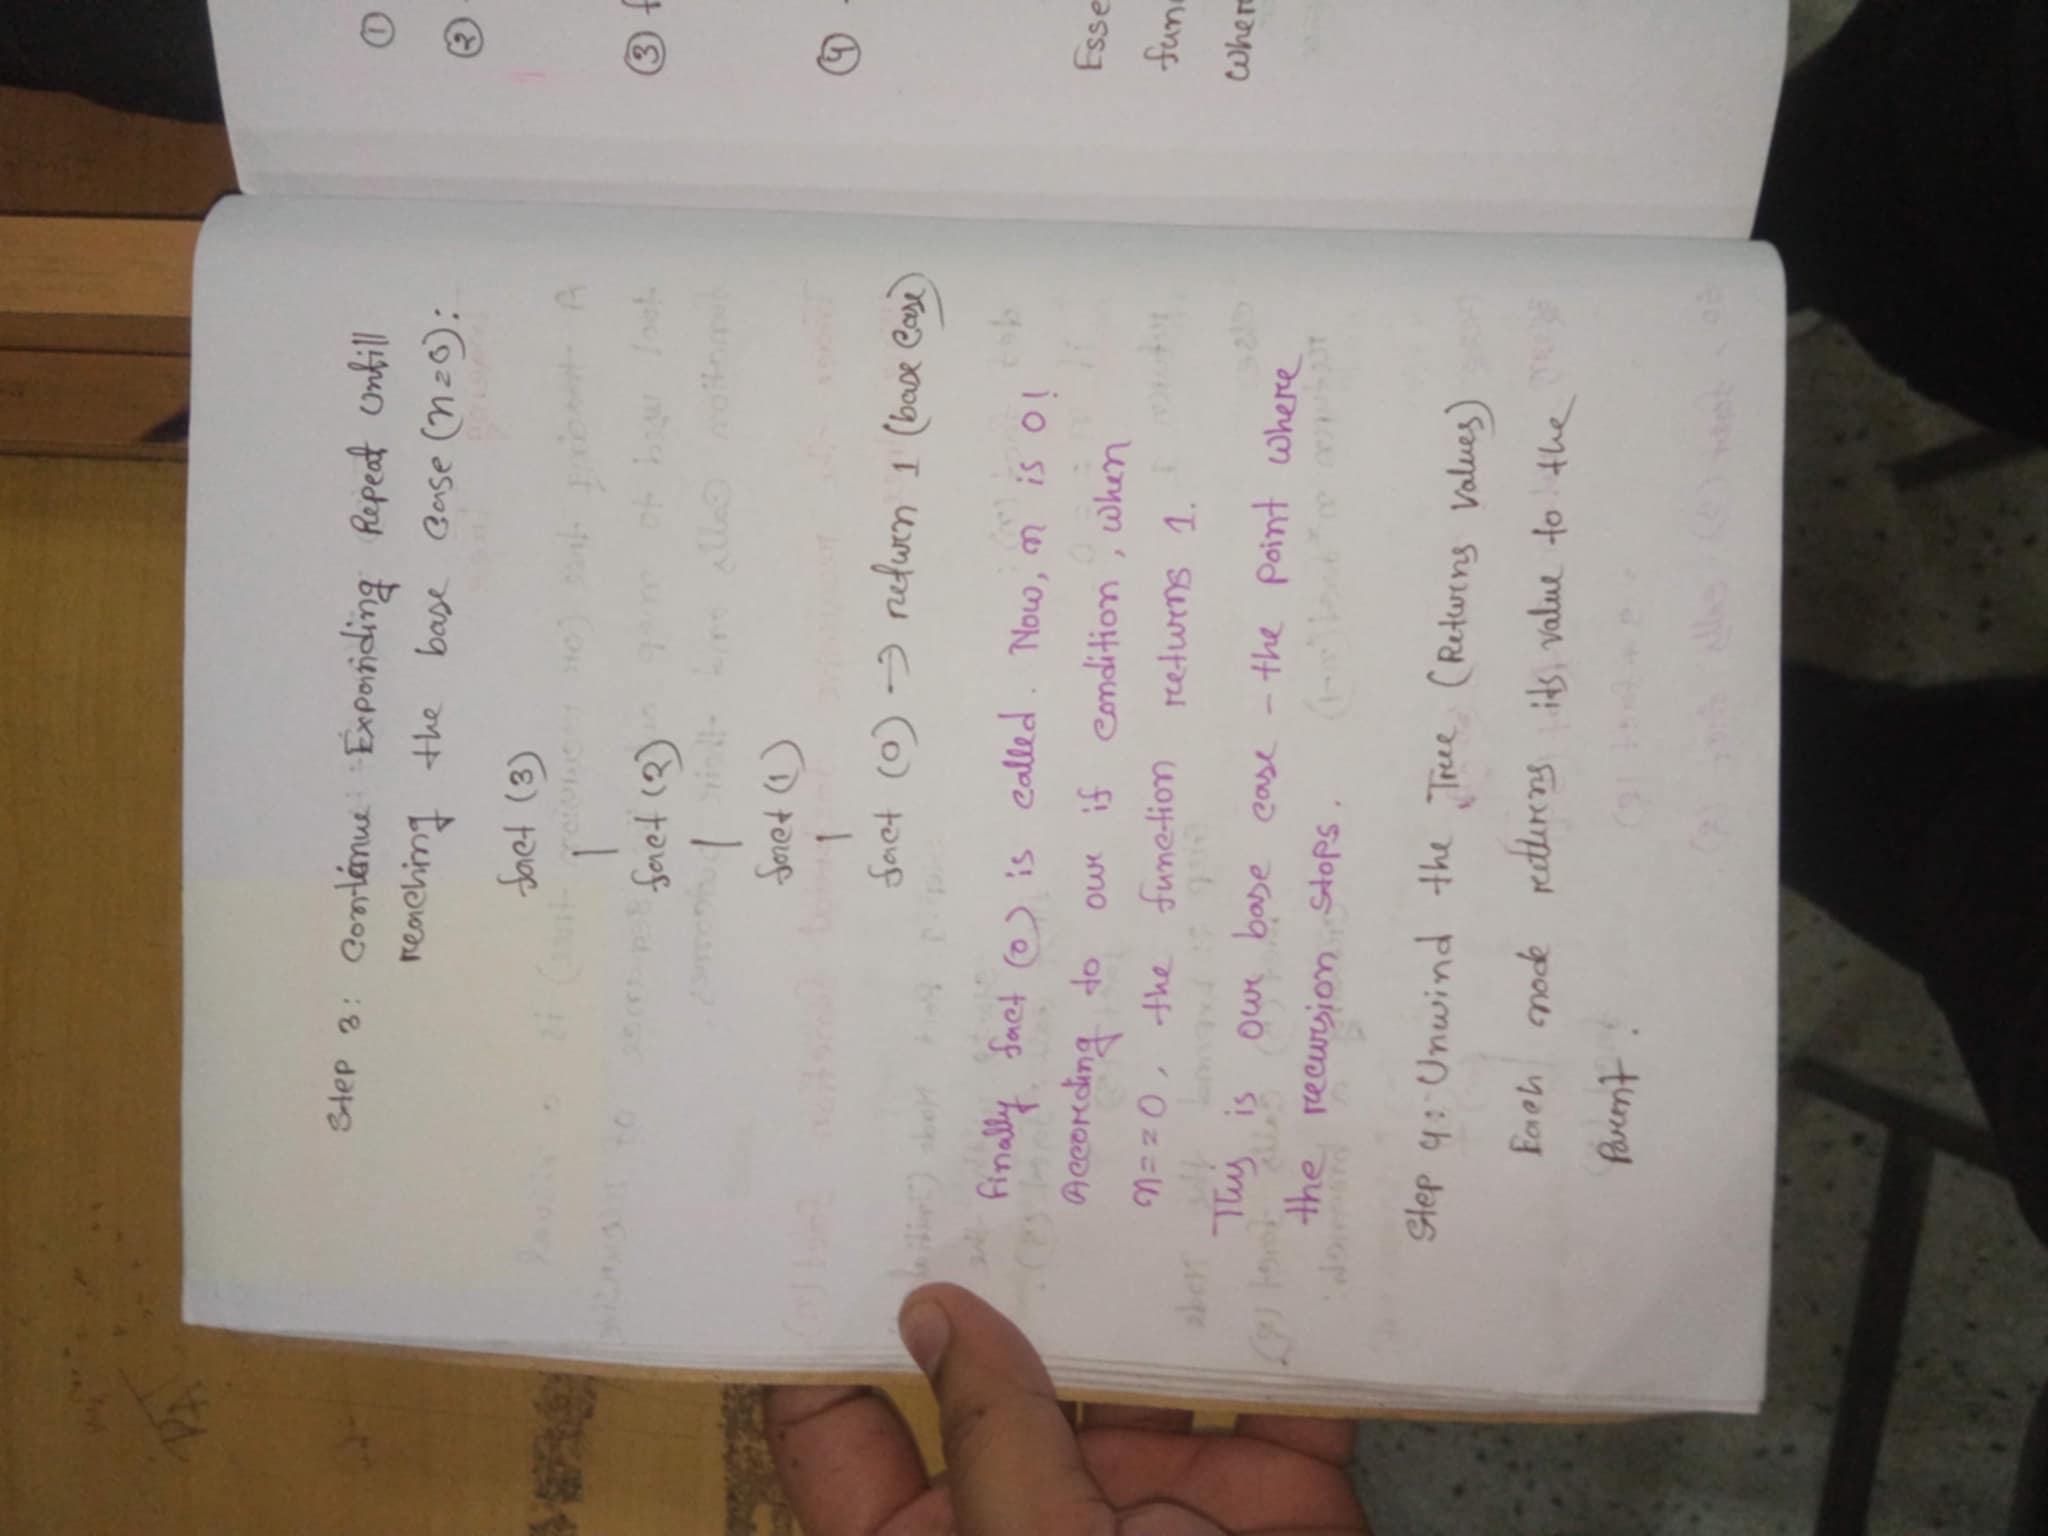 Step 3: Continue Expanding Repeat Untill
reaching the base case (n=0):
fact (3)
|
fact (2)
|
fact (1)
|
fact (0) → return 1 (base case)
Finally fact (0) is called. Now, n is 0!
According to our if condition, when
n==0, the function returns 1.
This is our base case - the point where
the recursion stops.
Step 4: Unwind the Tree (Returns Values)
Each node returns its value to the
Parent.
①
②
③ f
④
Esse
fun
wher